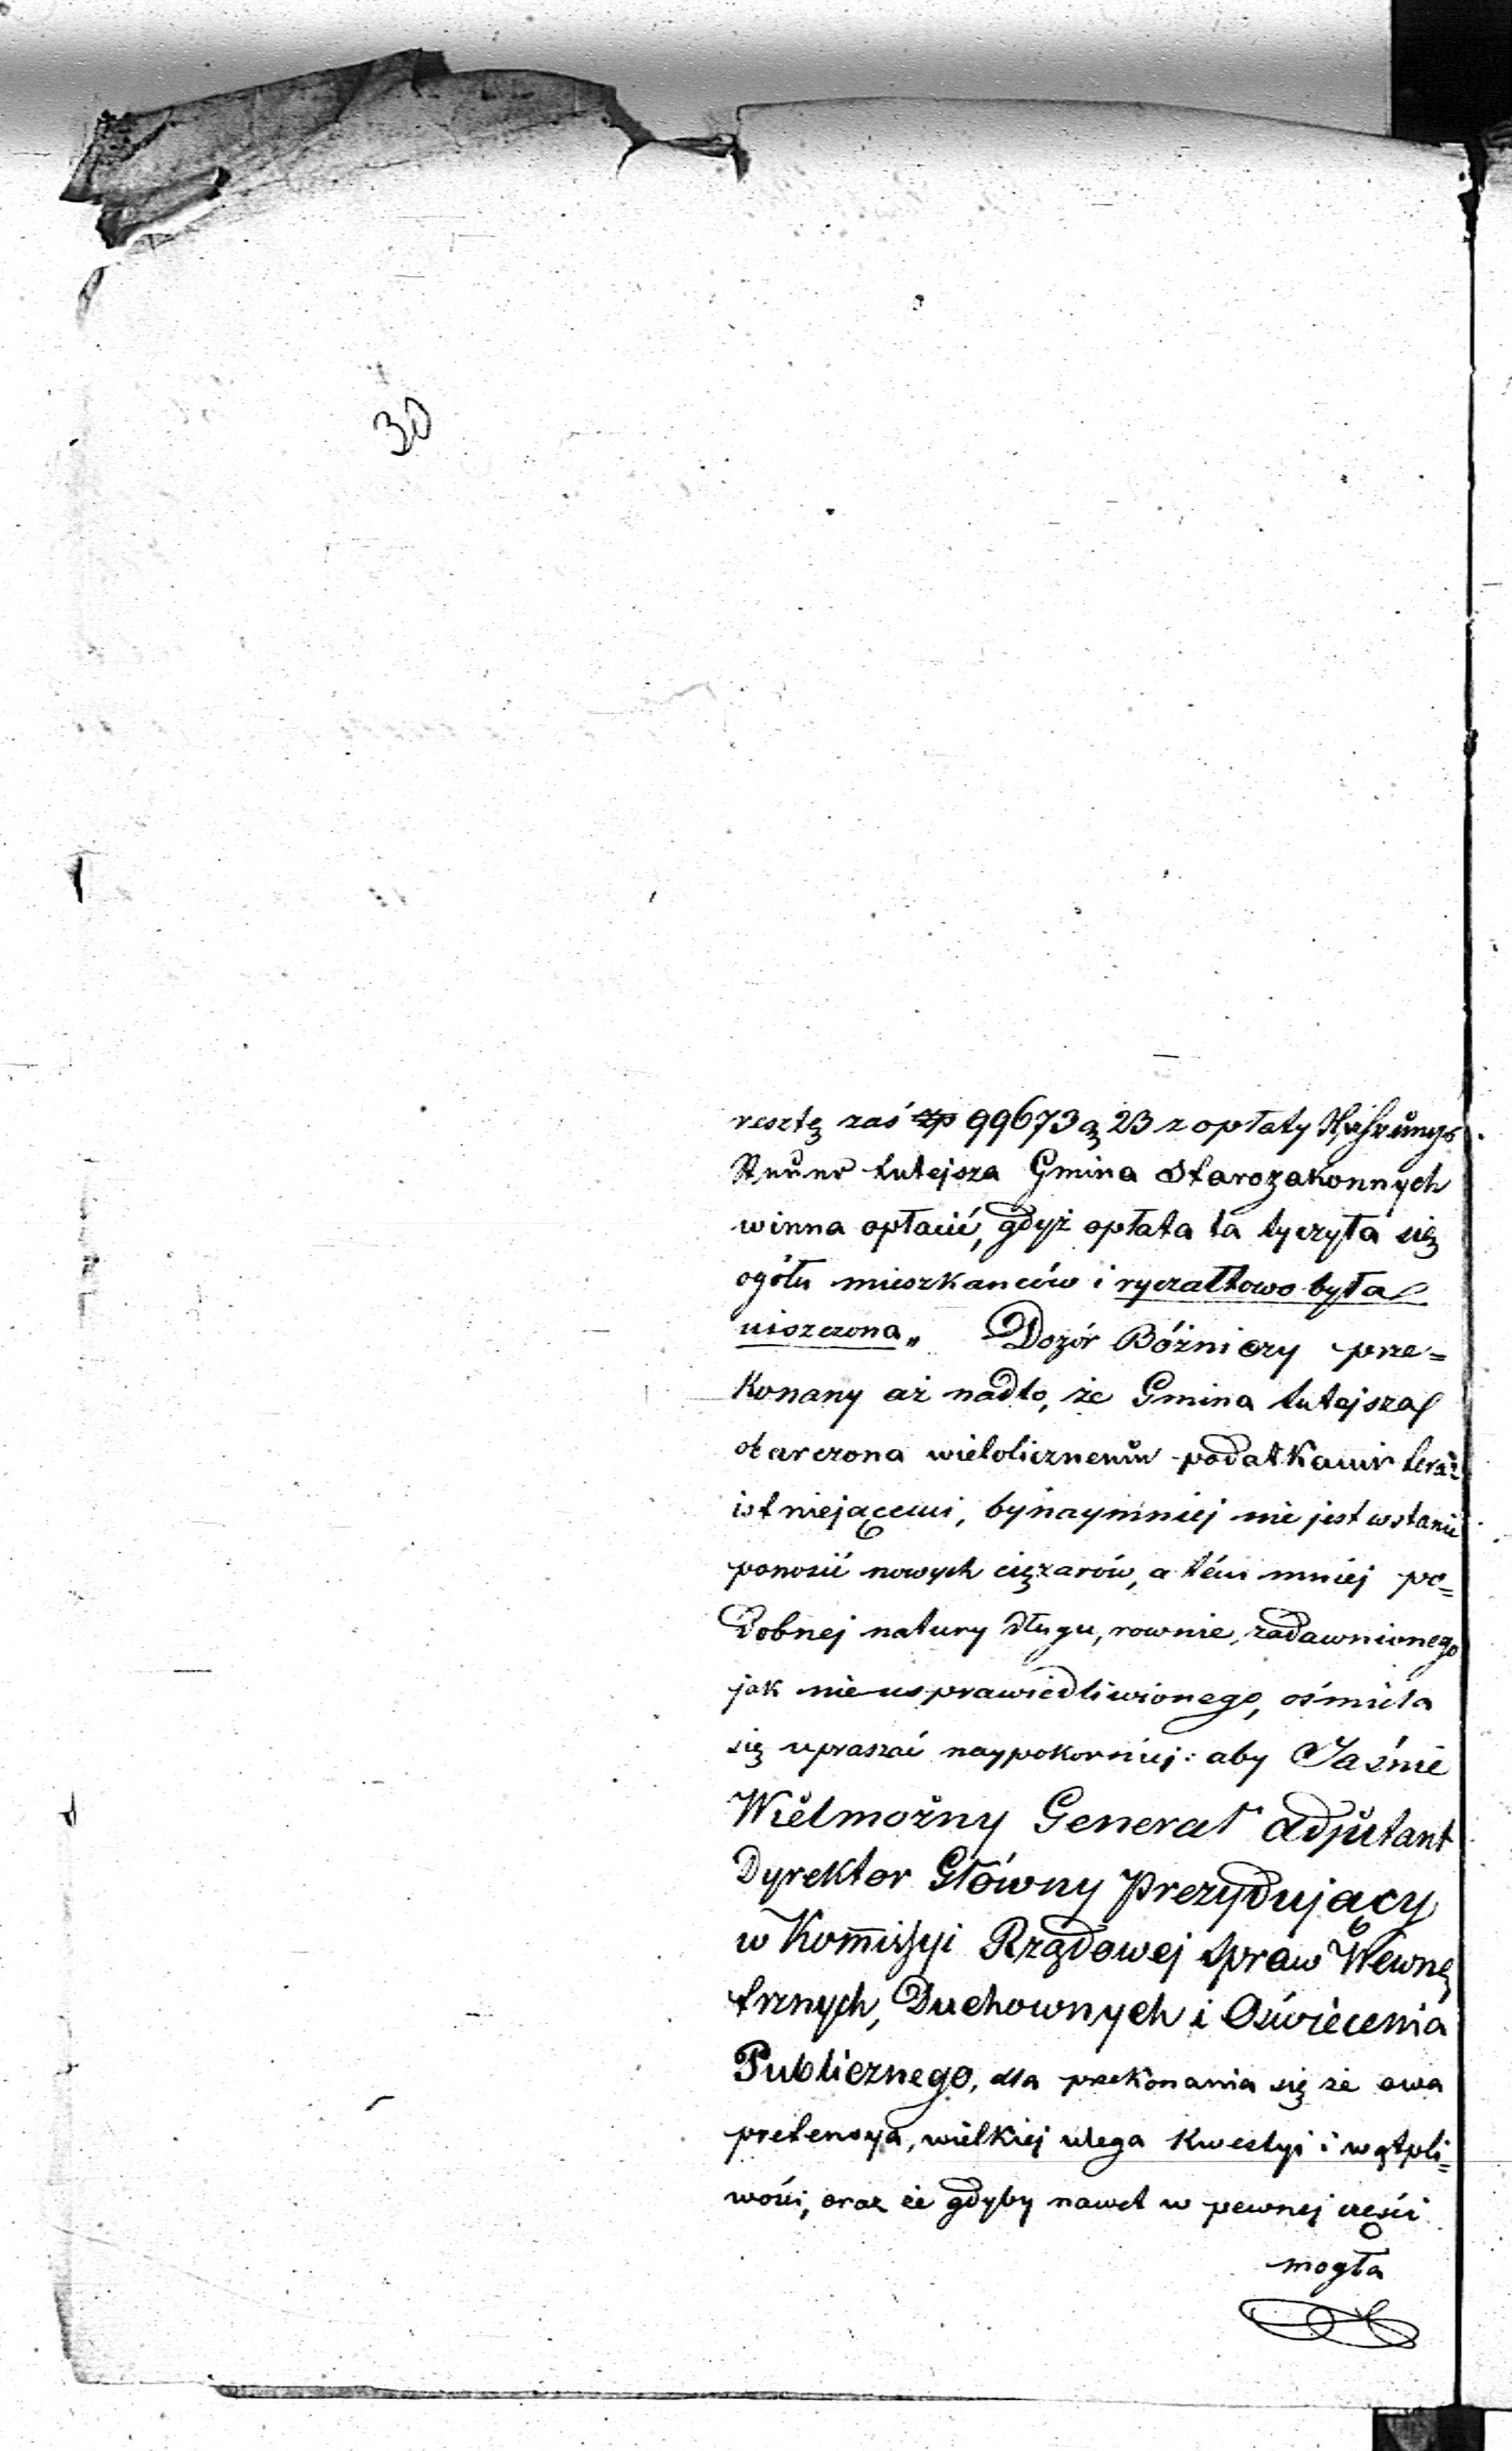 30
resztę zaś zp 99673 g 23 z opłaty Nahrungs
Steuer tutejsza Gmina Starozakonnych
winna opłacić, gdyż opłata ta tyczyła się
ogółu mieszkanców i ryczałtowo była
uiszczona„ Dozór Bóżniczy prze=
konany aż nadto, że Gmina tutejsza
obarczona wielolicznemi podatkami teraz
istniejącemi, bynaymniej nie jest wstanie
ponosić nowych ciężarów, a tém mniej po=
dobnej natury długu, rownie, zadawnionego
jak nieusprawiedliwionego, ośmiela
się upraszać naypokorniej: aby Jaśnie
Wielmożny Generał Adjutant
Dyrektor Główny Prezydujący
w Kommissyi Rządowej Spraw Wewnę
trznych, Duchownych i Oświecenia
Publicznego, dla przekonania się że owa
pretensya, wielkiej ulega kwestyi i wątpli=
wości, oraz że gdyby nawet w pewnej części
mogła